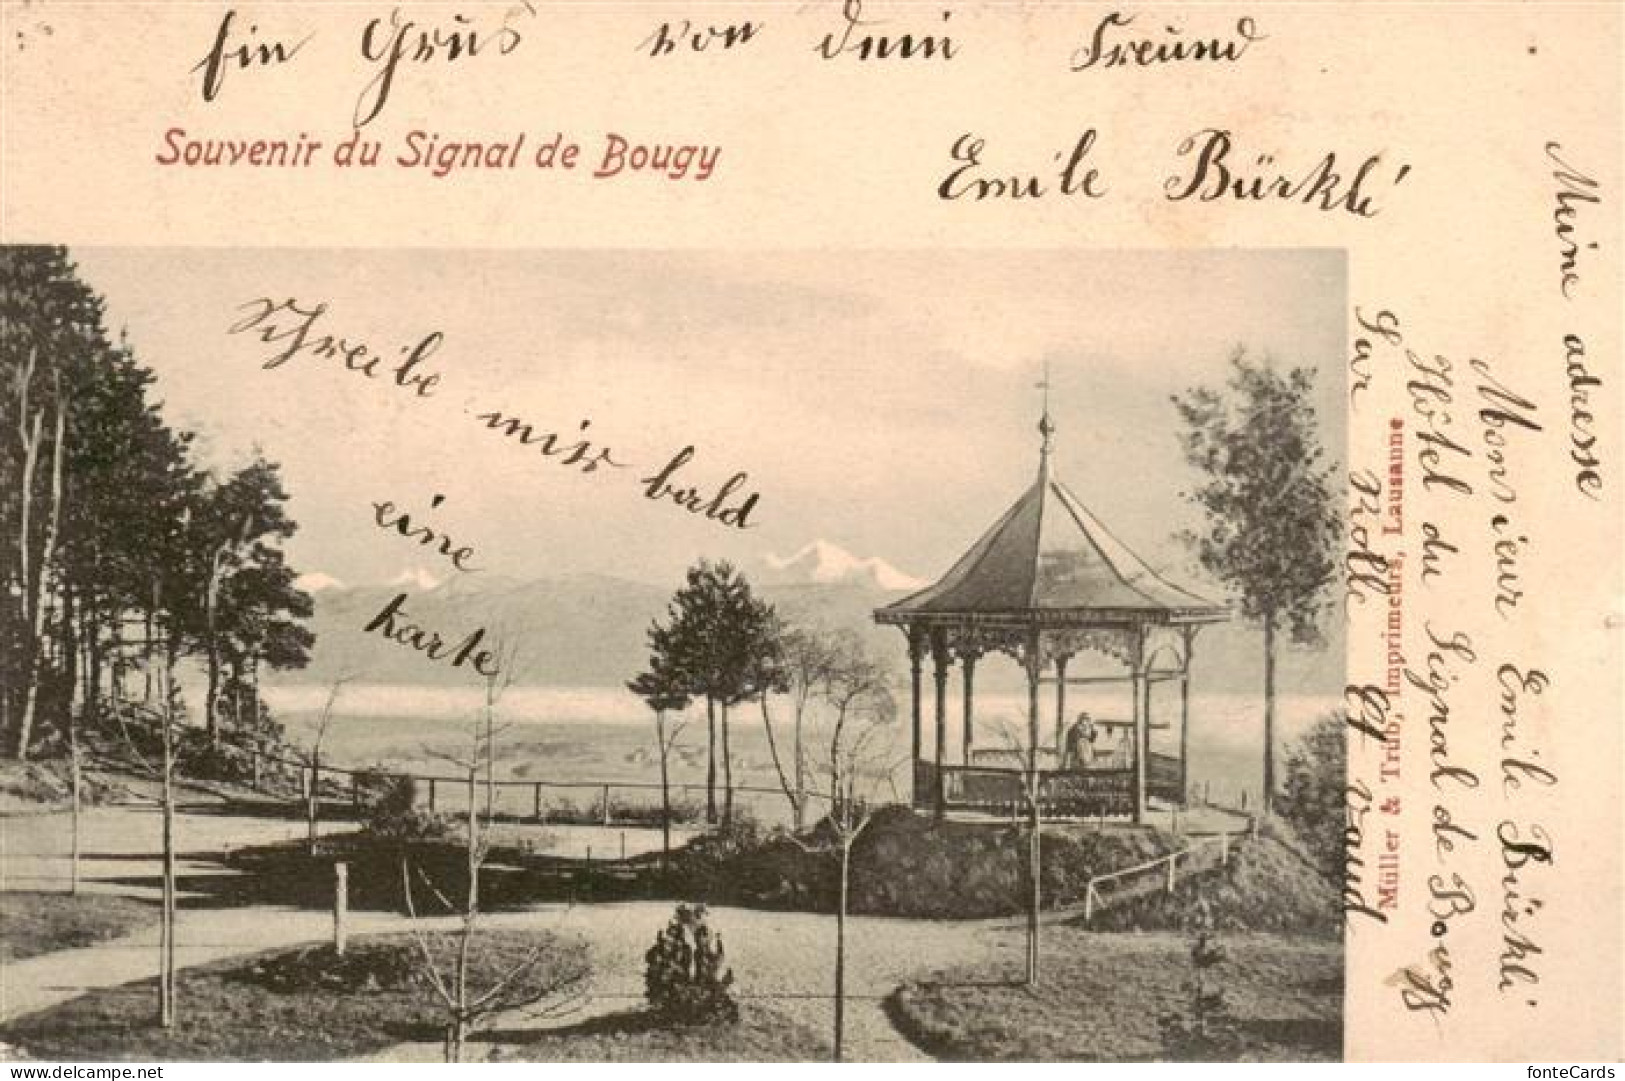 Ein Grus von dein Freund
Souvenir du Signal de Bougy
Emile Bürkli
Schreibe mir bald
eine
karte
Meine adresse
Monsieur Emile Bürkli
Hôtel du Signal de Bougy
Sur Rolle Ct Vaud
Müller & Trüb, Imprimeurs, Lausanne
https://www.delcampe.net
fonteCards